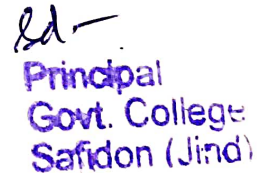 Sd-
Principal
Govt. College
Safidon (Jind)